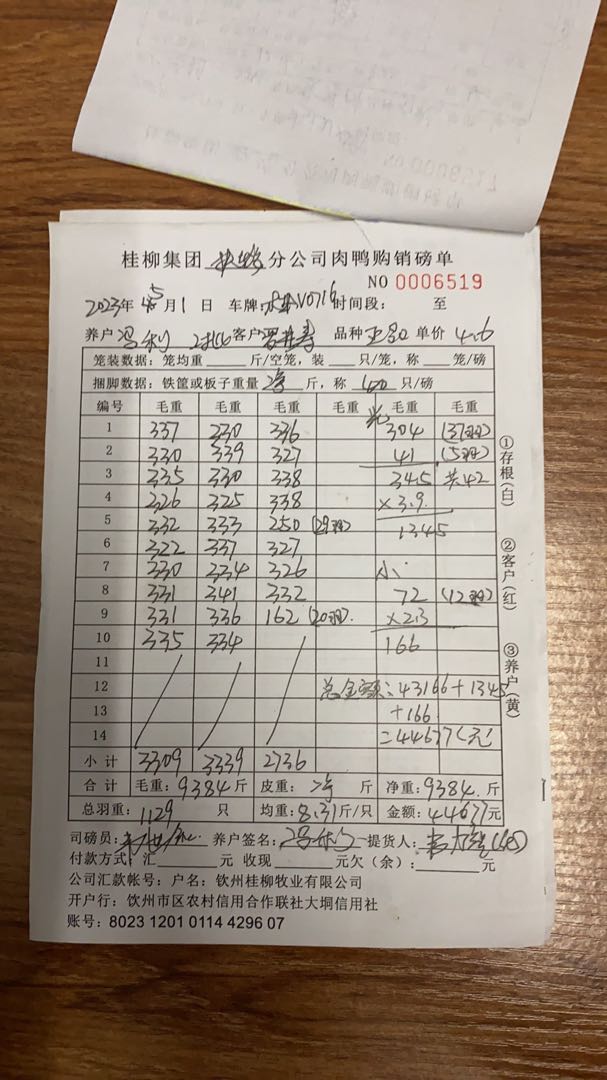 桂柳集团 分公司肉鸭购销磅单
NO 0006519
2023年 5月1日 车牌: V0716 时间段: 至
养户 冯利 客户 品种 单价 4.6
笼装数据: 笼均重 斤/空笼, 装 只/笼, 称 笼/磅
捆脚数据: 铁筐或板子重量 净 斤, 称 只/磅
编号 毛重 毛重 毛重 毛重 毛重 毛重
1 337 330 336 304 (37羽)
2 330 339 327 41 (5羽)
3 335 330 338 345 共42
4 326 325 338 ×3.9
5 332 333 250 (29羽) 1345
6 322 337 327
7 330 334 326 小:
8 331 341 332 72 (12羽)
9 331 336 162 (20羽) ×2.3
10 335 334 166
11
12 总金额:43166+1345
13 +166
14 =44677(元)
小计 3309 3339 2736
合计 毛重:9384斤 皮重: 净 斤 净重:9384斤
总羽重: 1129 只 均重:8.31斤/只 金额:44677元
司磅员: 养户签名: 提货人:
付款方式: 汇 元 收现 元欠(余): 元
公司汇款帐号: 户名: 钦州桂柳牧业有限公司
开户行: 钦州市区农村信用合作联社大垌信用社
账号: 8023 1201 0114 4296 07
①存根(白)
②客户(红)
③养户(黄)